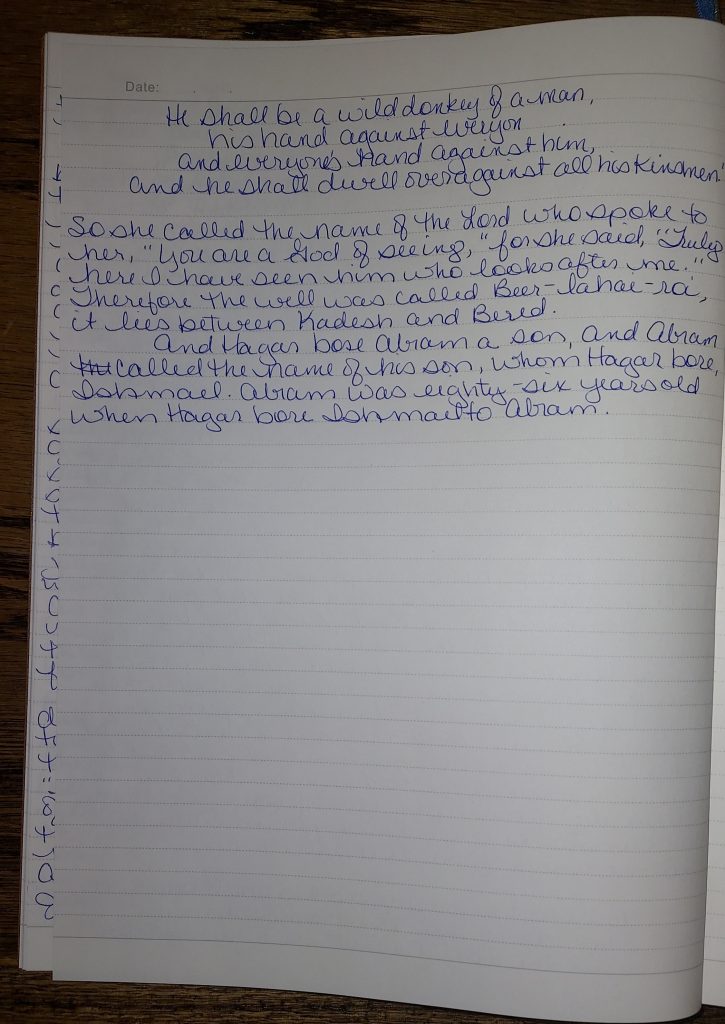 Date:
He shall be a wild donkey of a man,
his hand against everyon
and everyone's hand against him,
and he shall dwell over against all his kinsmen."
So she called the name of the Lord who spoke to
her, "You are a God of seeing," for she said, "Truly
here I have seen him who looks after me."
Therefore the well was called Beer-lahai-roi,
it lies between Kadesh and Bered.
And Hagar bore Abram a son, and Abram
called the name of his son, whom Hagar bore,
Ishmael. Abram was eighty-six years old
when Hagar bore Ishmael to Abram.